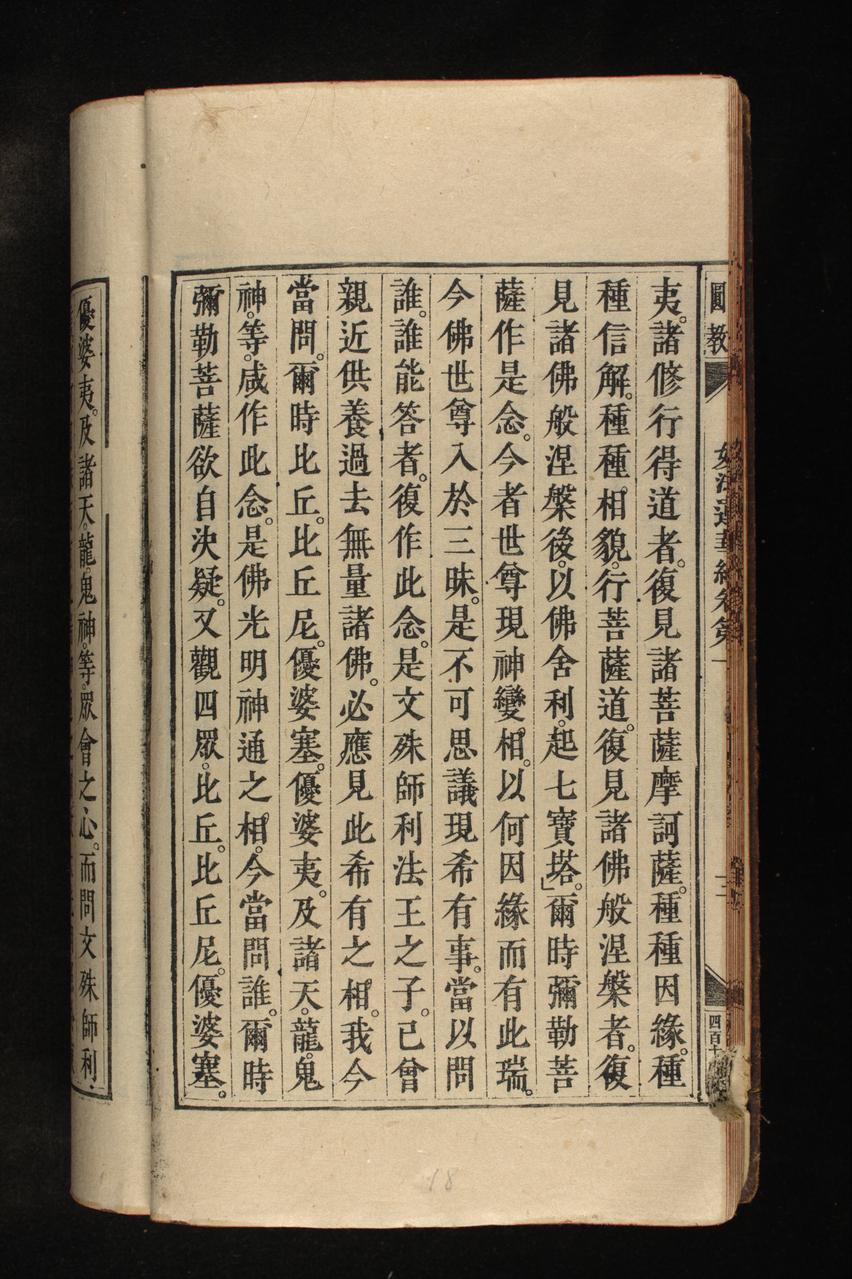 圓教
妙法蓮華經卷第一
三
四百十
夷。諸修行得道者。復見諸菩薩摩訶薩。種種因緣。種
種信解。種種相貌。行菩薩道。復見諸佛般涅槃者。復
見諸佛般涅槃後。以佛舍利。起七寶塔。」爾時彌勒菩
薩作是念。今者世尊現神變相。以何因緣而有此瑞。
今佛世尊入於三昧。是不可思議現希有事。當以問
誰。誰能答者。復作此念。是文殊師利法王之子。已曾
親近供養過去無量諸佛。必應見此希有之相。我今
當問。爾時比丘。比丘尼。優婆塞。優婆夷。及諸天。龍。鬼
神。等。咸作此念。是佛光明神通之相。今當問誰。爾時
彌勒菩薩欲自決疑。又觀四眾。比丘。比丘尼。優婆塞。
優婆夷。及諸天。龍。鬼神。等。眾會之心。而問文殊師利
18